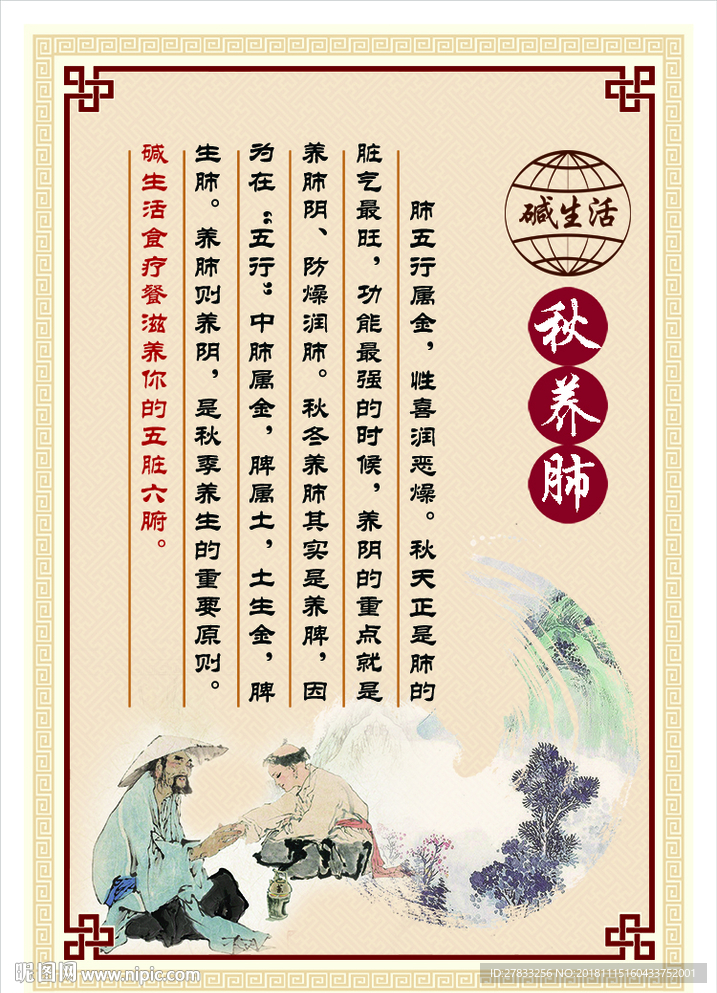 碱生活
秋养肺
肺五行属金，性喜润恶燥。秋天正是肺的
脏气最旺，功能最强的时候，养阴的重点就是
养肺阴、防燥润肺。秋冬养肺其实是养脾，因
为在“五行”中肺属金，脾属土，土生金，脾
生肺。养肺则养阴，是秋季养生的重要原则。
碱生活食疗餐滋养你的五脏六腑。
昵图网 www.nipic.com
ID:27833256 NO:20181115160433752001